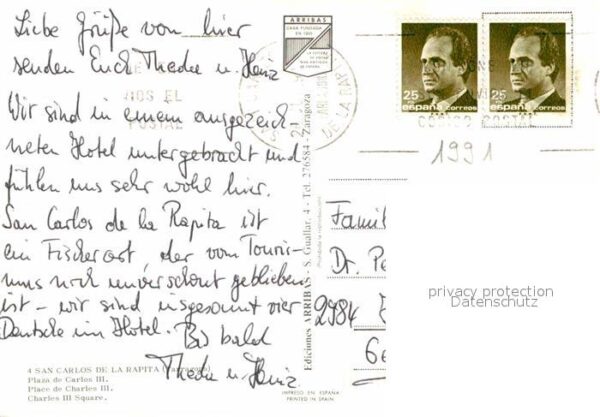 Liebe Grüße von hier
senden Euch Thedu u. Heinz
Wir sind in einem ausgezeich
neten Hotel untergebracht und
fühlen uns sehr wohl hier.
San Carlos de la Rapita ist
ein Fischerort, der vom Touris-
mus noch unverschont geblieben
ist – wir sind insgesamt vier
Deutsche im Hotel. Bis bald
u. Heinz
4 SAN CARLOS DE LA RAPITA (Tarragona)
Plaza de Carlos III.
Place de Charles III.
Charles III Square.
ARRIBAS
Ediciones ARRIBAS - S. Guallar, 4 - Tel. 276584 - Zaragoza
Prohibida la reproducción
IMPRESO EN ESPAÑA
PRINTED IN SPAIN
25
españa CORREOS
25
españa CORREOS
CODIGO POSTAL
1991
Famil
Dr. Pe
2984
privacy protection
Datenschutz